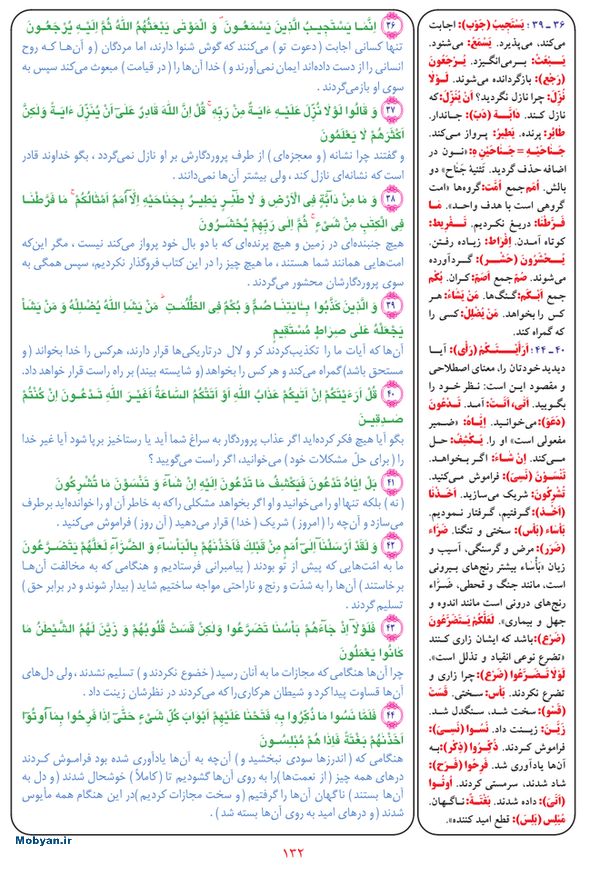 ۳۶ إِنَّمَا يَسْتَجِيبُ الَّذِينَ يَسْمَعُونَ ۘ وَ الْمَوْتَى يَبْعَثُهُمُ اللَّهُ ثُمَّ إِلَيْهِ يُرْجَعُونَ
تنها کسانی اجابت (دعوت تو) می‌کنند که گوش شنوا دارند، اما مردگان (و آن‌هـا کـه روح
انسانی را از دست داده‌اند ایمان نمی‌آورند و) خدا آن‌ها را (در قیامت) مبعوث می‌کند سپس به
سوی او بازمی‌گردند.
۳۷ وَ قَالُوا لَوْلَا نُزِّلَ عَلَيْهِ ءَايَةٌ مِنْ رَبِّهِ ۚ قُلْ إِنَّ اللَّهَ قَادِرٌ عَلَىٰٓ أَنْ يُنَزِّلَ ءَايَةً وَلٰكِنَّ
أَكْثَرَهُمْ لَا يَعْلَمُونَ
و گفتند چرا نشانه (و معجزه‌ای) از طرف پروردگارش بر او نازل نمی‌گردد ، بگو خداوند قادر
است که نشانه‌ای نازل کند ، ولی بیشتر آن‌ها نمی‌دانند .
۳۸ وَ مَا مِنْ دَابَّةٍ فِى الْأَرْضِ وَ لَا طَـٰٓئِرٍ يَطِيرُ بِجَنَاحَيْهِ إِلَّآ أُمَمٌ أَمْثَالُكُمْ ۚ مَا فَرَّطْنَا
فِى الْكِتَـٰبِ مِنْ شَىْءٍ ۚ ثُمَّ إِلَى رَبِّهِمْ يُحْشَرُونَ
هیچ جنبنده‌ای در زمین و هیچ پرنده‌ای که با دو بال خود پرواز می‌کند نیست ، مگر این‌که
امت‌هایی همانند شما هستند ، ما هیچ چیز را در این کتاب فروگذار نکردیم، سپس همگی به
سوی پروردگارشان محشور می‌گردند .
۳۹ وَ الَّذِينَ كَذَّبُوا بِـَٔايَـٰتِنَا صُمٌّ وَ بُكْمٌ فِى الظُّلُمَـٰتِ ۗ مَنْ يَشَأِ اللَّهُ يُضْلِلْهُ وَ مَنْ يَشَأْ
يَجْعَلْهُ عَلَى صِرَاطٍ مُسْتَقِيمٍ
آن‌ها که آیات ما را تکذیب‌کردند کر و لال در تاریکی‌ها قرار دارند، هرکس را خدا بخواند (و
مستحق باشد)گمراه می‌کند و هر کس را بخواهد (و شایسته بیند) بر راه راست قرار خواهد داد.
۴۰ قُلْ أَرَءَيْتَكُمْ إِنْ أَتَىٰكُمْ عَذَابُ اللَّهِ أَوْ أَتَتْكُمُ السَّاعَةُ أَغَيْرَ اللَّهِ تَدْعُونَ إِنْ كُنْتُمْ
صَـٰدِقِينَ
بگو آیا هیچ فکر کرده‌اید اگر عذاب پروردگار به سراغ شما آید یا رستاخیز برپا شود آیا غیر خدا
را (برای حلّ مشکلات خود) می‌خوانید، اگر راست می‌گویید ؟
۴۱ بَلْ إِيَّاهُ تَدْعُونَ فَيَكْشِفُ مَا تَدْعُونَ إِلَيْهِ إِنْ شَآءَ وَ تَنْسَوْنَ مَا تُشْرِكُونَ
( نه ) بلکه تنها او را می‌خوانید و او اگر بخواهد مشکلی را که به خاطر آن او را خوانده‌اید برطرف
می‌سازد و آن‌چه را (امروز) شریک (خدا) قرار می‌دهید (آن روز) فراموش می‌کنید .
۴۲ وَ لَقَدْ أَرْسَلْنَآ إِلَىٰٓ أُمَمٍ مِنْ قَبْلِكَ فَأَخَذْنَـٰهُمْ بِالْبَأْسَآءِ وَ الضَّرَّآءِ لَعَلَّهُمْ يَتَضَرَّعُونَ
ما به امّت‌هایی که پیش از تو بودند (پیامبرانی فرستادیم و هنگامی که به مخالفت آن‌ها
برخاستند) آن‌ها را به شدّت و رنج و ناراحتی مواجه ساختیم شاید (بیدار شوند و در برابر حق)
تسلیم گردند .
۴۳ فَلَوْلَآ إِذْ جَآءَهُمْ بَأْسُنَا تَضَرَّعُوا وَلٰكِنْ قَسَتْ قُلُوبُهُمْ وَ زَيَّنَ لَهُمُ الشَّيْطَـٰنُ مَا
كَانُوا يَعْمَلُونَ
چرا آن‌ها هنگامی که مجازات ما به آنان رسید (خضوع نکردند و) تسلیم نشدند، ولی دل‌های
آن‌ها قساوت پیدا کرد و شیطان هرکاری را که می‌کردند در نظرشان زینت داد .
۴۴ فَلَمَّا نَسُوا مَا ذُكِّرُوا بِهِ فَتَحْنَا عَلَيْهِمْ أَبْوَابَ كُلِّ شَىْءٍ حَتَّىٰٓ إِذَا فَرِحُوا بِمَآ أُوتُوٓا
أَخَذْنَـٰهُمْ بَغْتَةً فَإِذَا هُمْ مُبْلِسُونَ
هنگامی که (اندرزها سودی نبخشید و) آن‌چه به آن‌ها یادآوری شده بود فراموش کردند
درهای همه چیز (از نعمت‌ها)را به روی آن‌ها گشودیم تا (کاملاً) خوشحال شدند (و دل به
آن‌ها بستند) ناگهان آن‌ها را گرفتیم (و سخت مجازات کردیم)در این هنگام همه مأیوس
شدند (و درهای امید به روی آن‌ها بسته شد) .
۳۶ ـ ۳۹ : يَسْتَجِيبُ (جَوْب): اجابت
می‌کند، می‌پذیرد. يَسْمَعُ: می‌شنود.
يَـبْعَثُ: برمی‌انگیزد. يُـرْجَعُونَ
(رَجْع): بازگردانده می‌شوند. لَوْلَا
نُزِّلَ: چرا نازل نگردید؟ أَنْ يُنَزِّلَ: که
نازل کند. دَابَّـة (دَبّ): جـاندار.
طَائِر: پرنده. يَطِيرُ: پـرواز مـی‌کند.
جَنَاحَيْهِ = جَنَاحَيْنِ هِ: «نـون در
اضافه حذف گردید. تثنیهٔ جَنَاح» دو
بالش. أُمَم:جمع أُمَّت: گروه‌ها «امت
گروهی است با هدف واحد». مَا
فَـرَّطْنَا: دریغ نکـردیم. تَـفْرِيط:
کوتاه آمـدن. إِفْرَاط: زیـاده رفتن.
يُـحْشَرُونَ (حَشْـر): گـردآورده
می‌شوند. صُمّ:جمع أَصَمّ: کـران. بُكْم
جمع أَبْكَم:گنگ‌ها. مَنْ يَشَأْ: هـر
کس را بخواهد. مَنْ يُضْلِلْ:کسی را
که گمراه کند.
۴۰ ـ ۴۴ : أَرَأَيْتَكُمْ (رَأْى): آیـا
دیدید خودتان را، معنای اصطلاحی
و مقصود این است: نظر خـود را
بگویید. أَتَى، أَتَتْ: آمد. تَـدْعُونَ
(دَعَوَ): می‌خوانید. إِيَّاهُ: «ضمیر
مفعولی است» او را. يَكْشِفُ: حل
می‌کند. إِنْ شَاءَ: اگـر بـخواهـد.
تَنْسَوْنَ (نَسِىَ): فراموش می‌کنید.
تُشْرِكُونَ: شریک می‌سازید. أَخَذْنَا
(أَخَذَ): گرفتیم، گرفتار نمودیم.
بَأْسَاء (بَأْس): سختی و تنگنا. ضَرَّاء
(ضَرَر): مرض و گرسنگی، آسیب و
زیان «بَأْسَاء بیشتر رنج‌های بیرونی
است، مانند جنگ و قحطی، ضَرَّاء
رنج‌های درونی است مانند اندوه و
جهل و بیماری». لَعَلَّهُمْ يَتَضَرَّعُونَ
(ضَرَع):باشد که ایشان زاری کـنند
«تضرع نوعی انقیاد و تذلل است».
لَوْلَا تَضَرَّعُوا (ضَرَع): چرا زاری و
تضرع نکردند. بَأْس: سختی. قَسَتْ
(قَسْو): سخت شـد، سنگدل شـد.
زَيَّنَ: زیـنت داد. نَسُوا (نَسِىَ):
فراموش کردند. ذُكِّرُوا (ذِكْر):به
آن‌ها یادآوری شد. فَرِحُوا (فَـرَح):
شاد شدند، سرمستی کردند. أُوتُوا
(أَتَى): داده شدند. بَغْتَةً: ناگـهان.
مُبْلِس (بَلَس): قطع امید کننده».
Mobyan.ir
۱۳۲